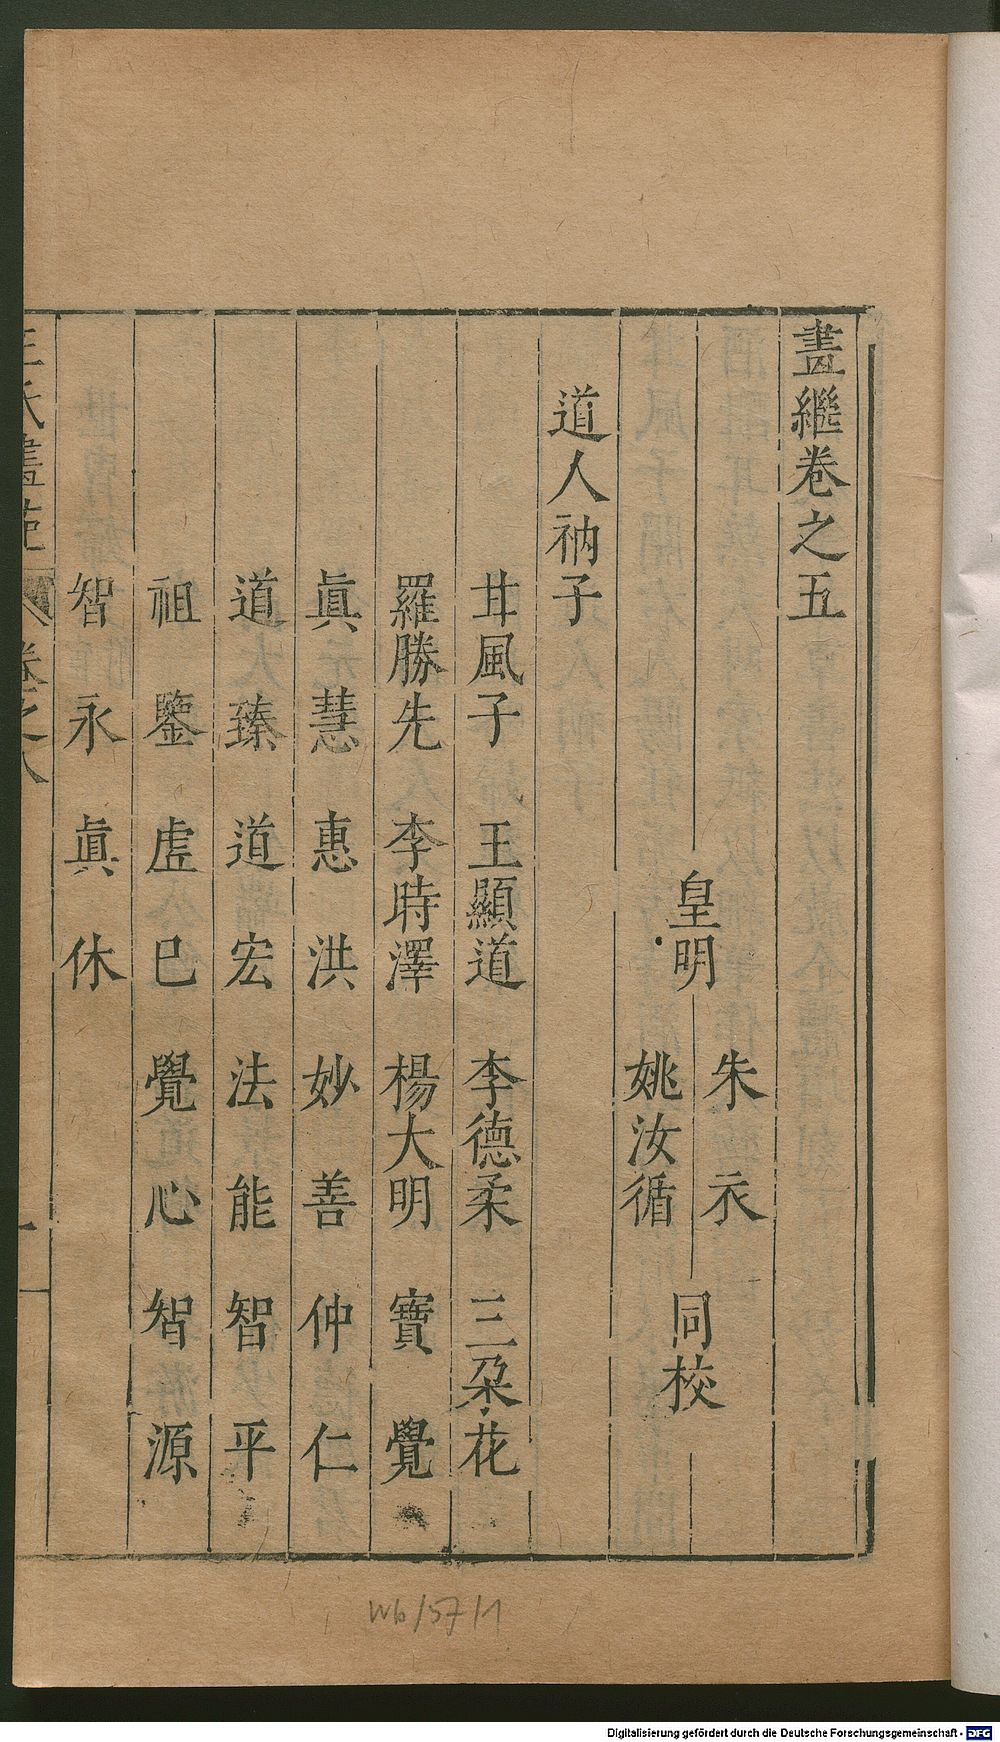 畫繼卷之五
皇明 朱 衣
姚汝循 同校
道人衲子
甘風子 王顯道 李德柔 三朵花
羅勝先 李時澤 楊大明 寶 覺
眞 慧 惠 洪 妙 善 仲 仁
道 臻 道 宏 法 能 智 平
祖 鑒 虛 巳 覺 心 智 源
智 永 眞 休
王氏畫苑 卷之八 一
wb/57/1
Digitalisierung gefördert durch die Deutsche Forschungsgemeinschaft - DFG